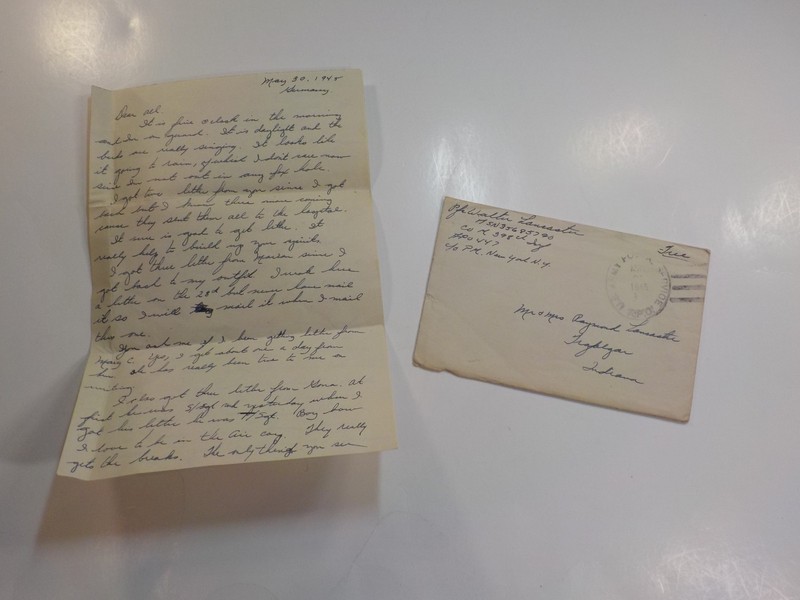 May 30, 1945
Germany
Dear all.
It is five o'clock in the morning
and I'm on guard. It is daylight and the
birds are really singing. It looks like
it going to rain, of which I don't care now
since I'm not out in any fox hole.
I got two letter from you since I got
back but I know there more coming
cause they sent them all to the hospital.
It sure is good to get letter. It
really help to build my spirits.
I got three letter from since I
got back to my outfit. I wrote her
a letter on the 28th but never have mail
it so I will mail it when I mail
this one.
You ask me if I been getting letter from
C. Yes, I get about one a day from
her. She has really been true to me a
writing.
I also got three letter from Gene. At
first he was S/Sgt and yesterday when I
got his letter he was T/Sgt. Boy how
I love to be in the Air Corp. They really
gets the breaks. The only thing you see
Pfc Walter Lancaster
35695790
Co K 398 Inf
APO 447
c/o P.M. New York N.Y.
Free
Mr & Mrs Raymond Lancaster
Indiana